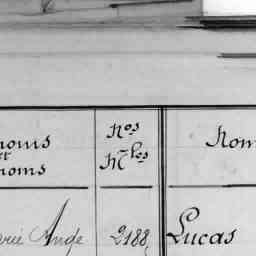 noms Nos Nom
et Mles
noms
arie Ange 2188 Lucas